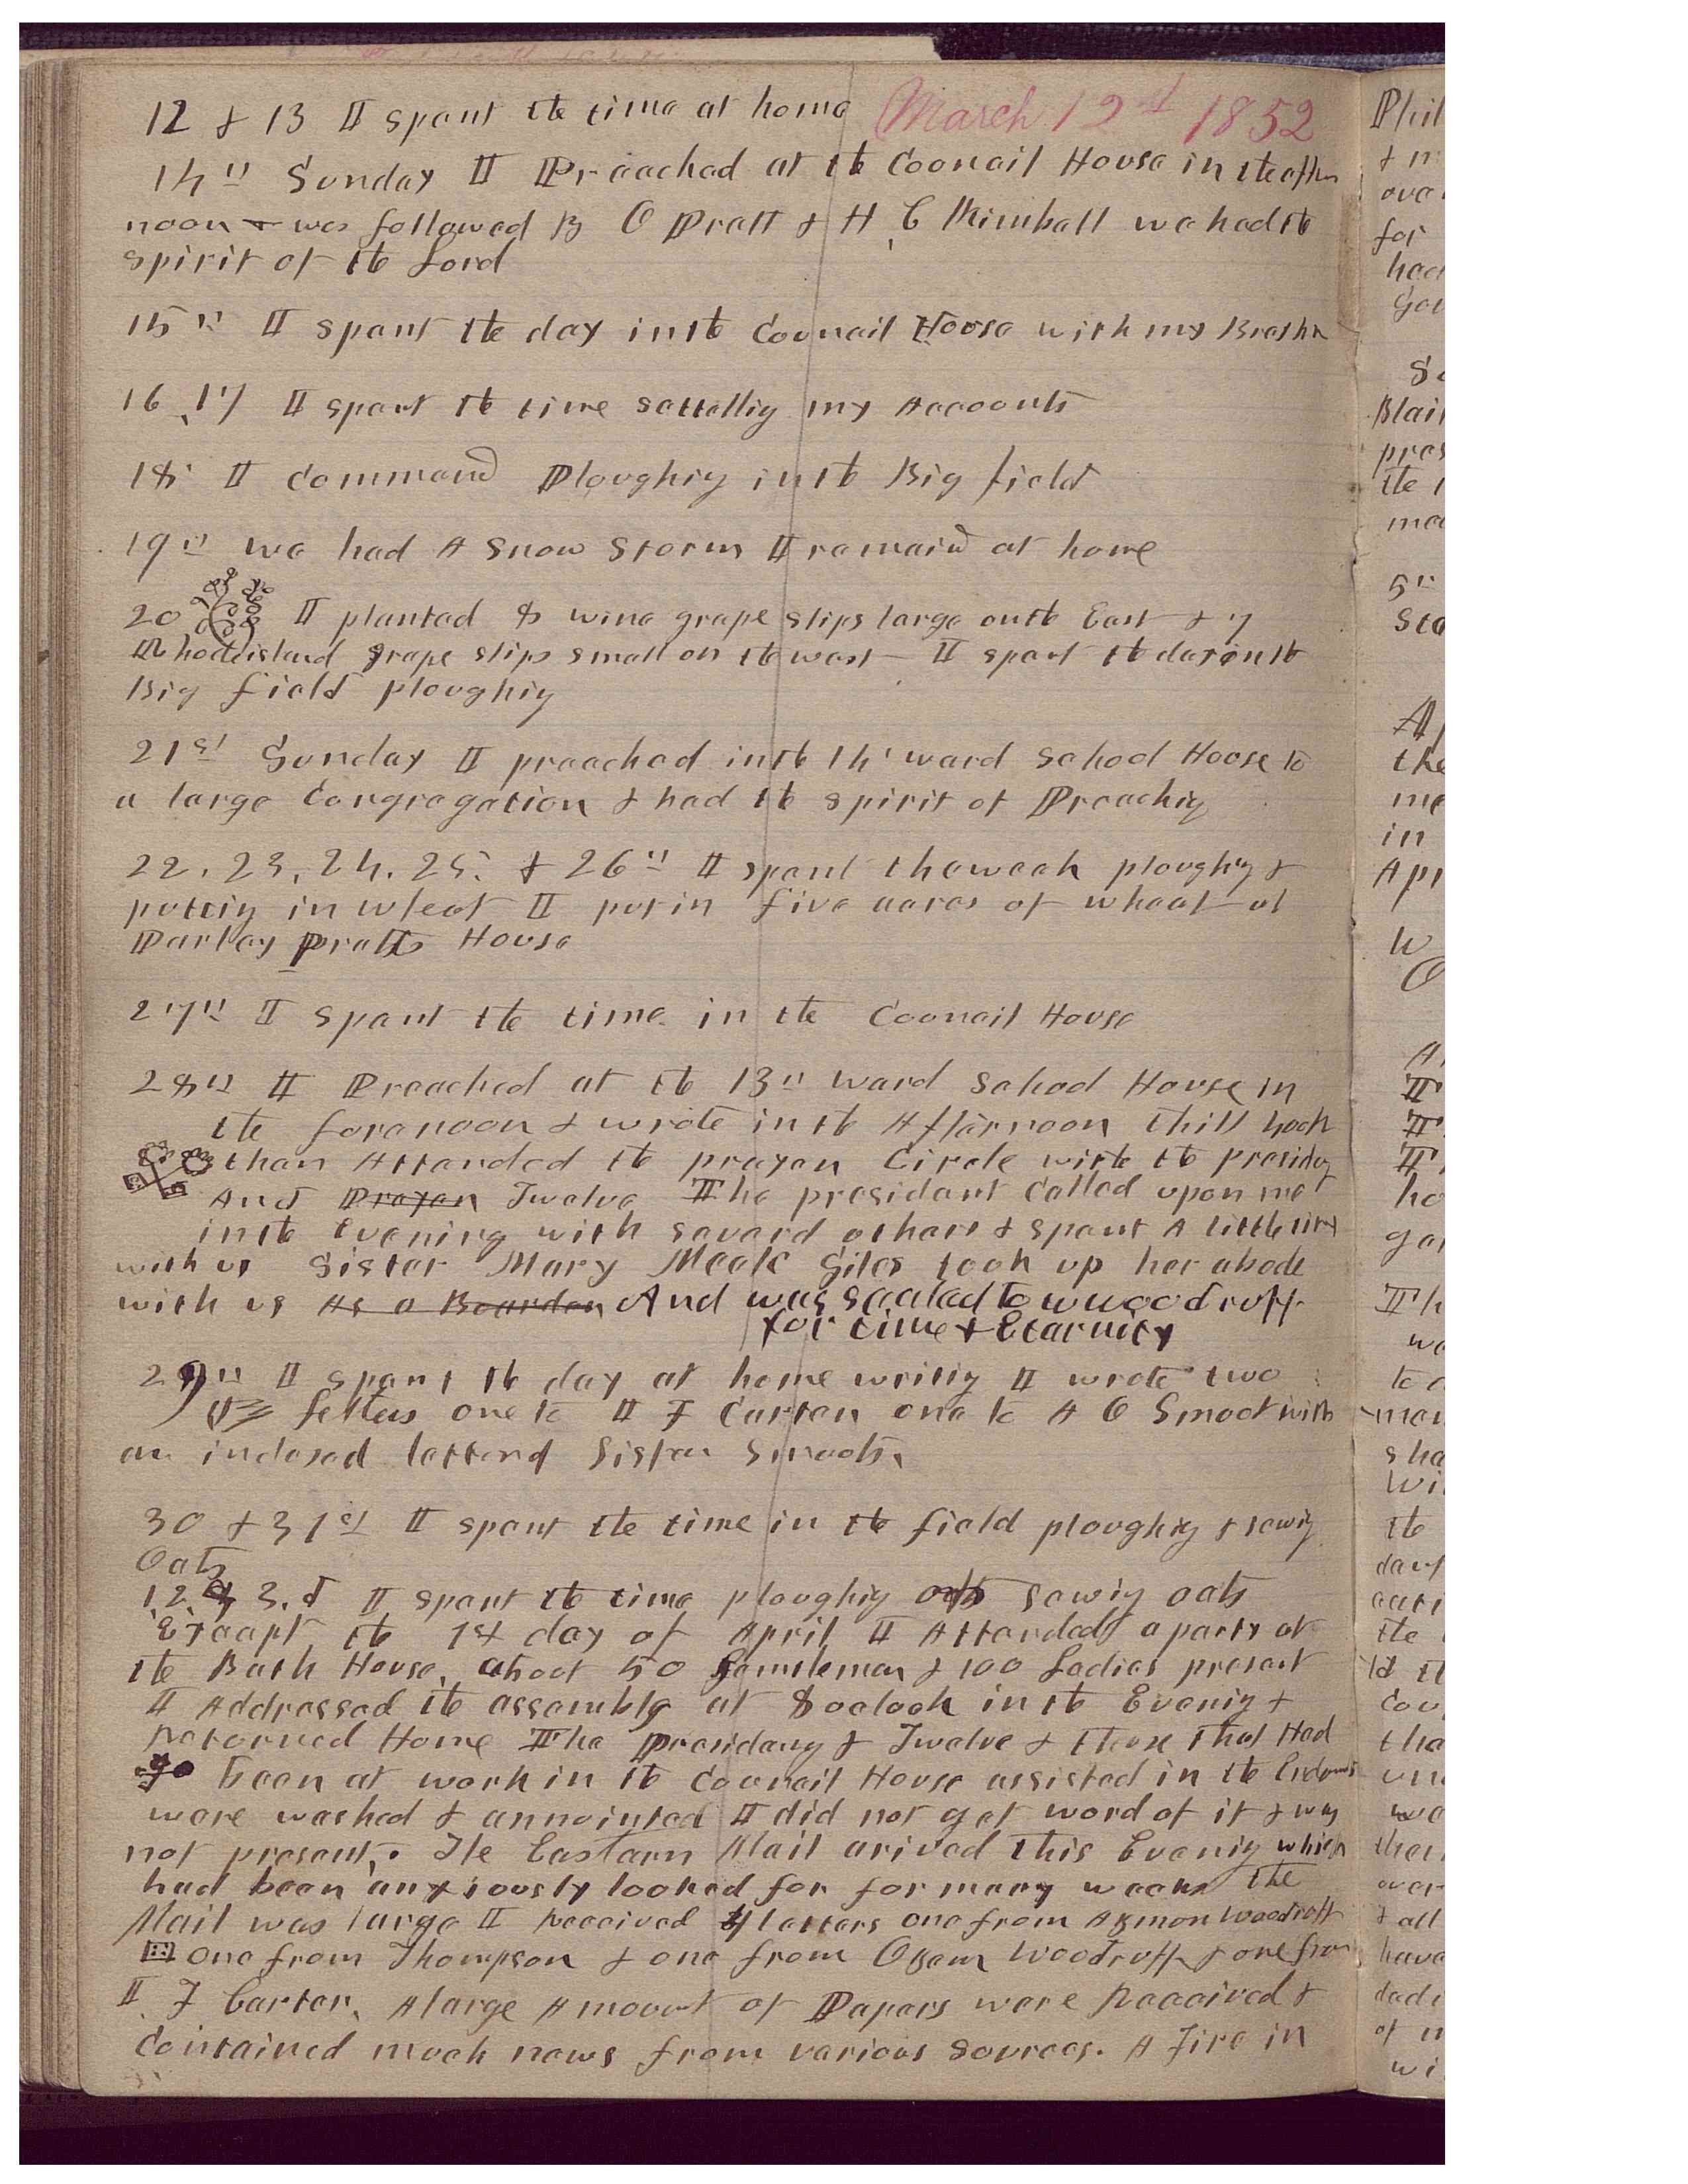 12 & 13 I spent the time at home March 12th 1852
14th Sunday I Preached at the Council House in the after
noon & was followed By O Pratt & H. C Kimball we had the
spirit of the Lord
15th I spent the day in the Council House with my Brethr
16, 17 I spent the time settellig my Accounts
18 I commenced Ploughig in the Big field
19th we had A snow storm I remaind at home
20 I planted 8 wine grape slips large on the East & 7
Rhodeisland grape slips small on the west I spent the day in the
Big field ploughig
21st Sunday I preached in the 14 ward school House to
a large Congregation & had the spirit of Preachig
22. 23, 24. 25. & 26th I spent the week ploughig &
puttig in wheat I put in five acres of wheat at
Parley Pratts House
27th I spent the time in the Council House
28th I Preached at the 13th ward school House in
the forenoon & wrote in the Afternoon till 4 ock
then Attended the prayer Circle with the Presidcy
And Prayer Twelve The president called upon me
in the evening with several others & spent A little time
with us Sister Mary Meek Giles took up her abode
with us As a Boarder And was sealed to W Woodruff
for time & Eternity
29th I spent the day at home writig I wrote two
Letters one to I F Carter one to A O Smoot with
an inclosed letter of Sister Smoots.
30 & 31st I spent the time in the field ploughig & sowig
Oats
1, 2 & 3.d I spent the time ploughig oats sowig oats
Except the 1st day of April I Attended a party at
the Bath House, about 50 gentlemen & 100 Ladies present
I Addressed the assembly at 8 oclock in the Evenig &
returned Home The Presidency & Twelve & those that Had
been at work in the Council House assisted in the Endowmt
were washed & annointed I did not get word of it & was
not present. The Eastarn Mail arived this Evenig which
had been anxiously looked for for many weeks the
Mail was large I Received 4 letters one from Azmon Woodruff
one from Thompson & one from Ozem Woodruff & one from
I F Carter. A large Amount of Papers were Received &
Contained much news from various Sources. A Fire in